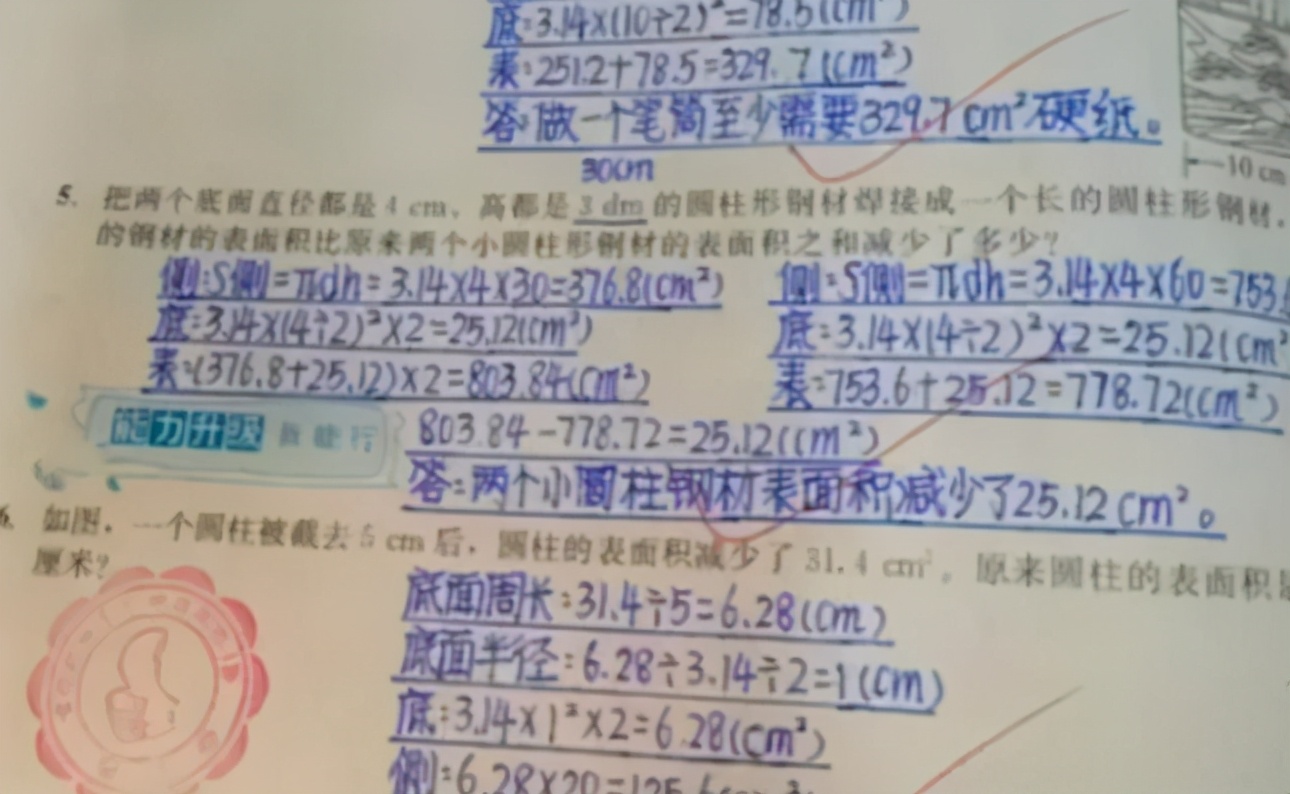 底:3.14×(10÷2)²=78.5(cm²)
表:251.2+78.5=329.7(cm²)
答:做一个笔筒至少需要329.7cm²硬纸。
10 cm
30cm
5. 把两个底面直径都是4 cm、高都是3 dm的圆柱形钢材焊接成一个长的圆柱形钢材,
的钢材的表面积比原来两个小圆柱形钢材的表面积之和减少了多少?
侧:S侧=πdh=3.14×4×30=376.8(cm²)
底:3.14×(4÷2)²×2=25.12(cm²)
表:(376.8+25.12)×2=803.84(cm²)
侧:S侧=πdh=3.14×4×60=753.
底:3.14×(4÷2)²×2=25.12(cm²
表:753.6+25.12=778.72(cm²)
能力升级
803.84-778.72=25.12(cm²)
答:两个小圆柱钢材表面积减少了25.12cm²。
如图,一个圆柱被截去5 cm后,圆柱的表面积减少了31.4 cm²。原来圆柱的表面积
厘米?
底面周长:31.4÷5=6.28(cm)
底面半径:6.28÷3.14÷2=1(cm)
底:3.14×1²×2=6.28(cm²)
侧:6.28×20=125.6